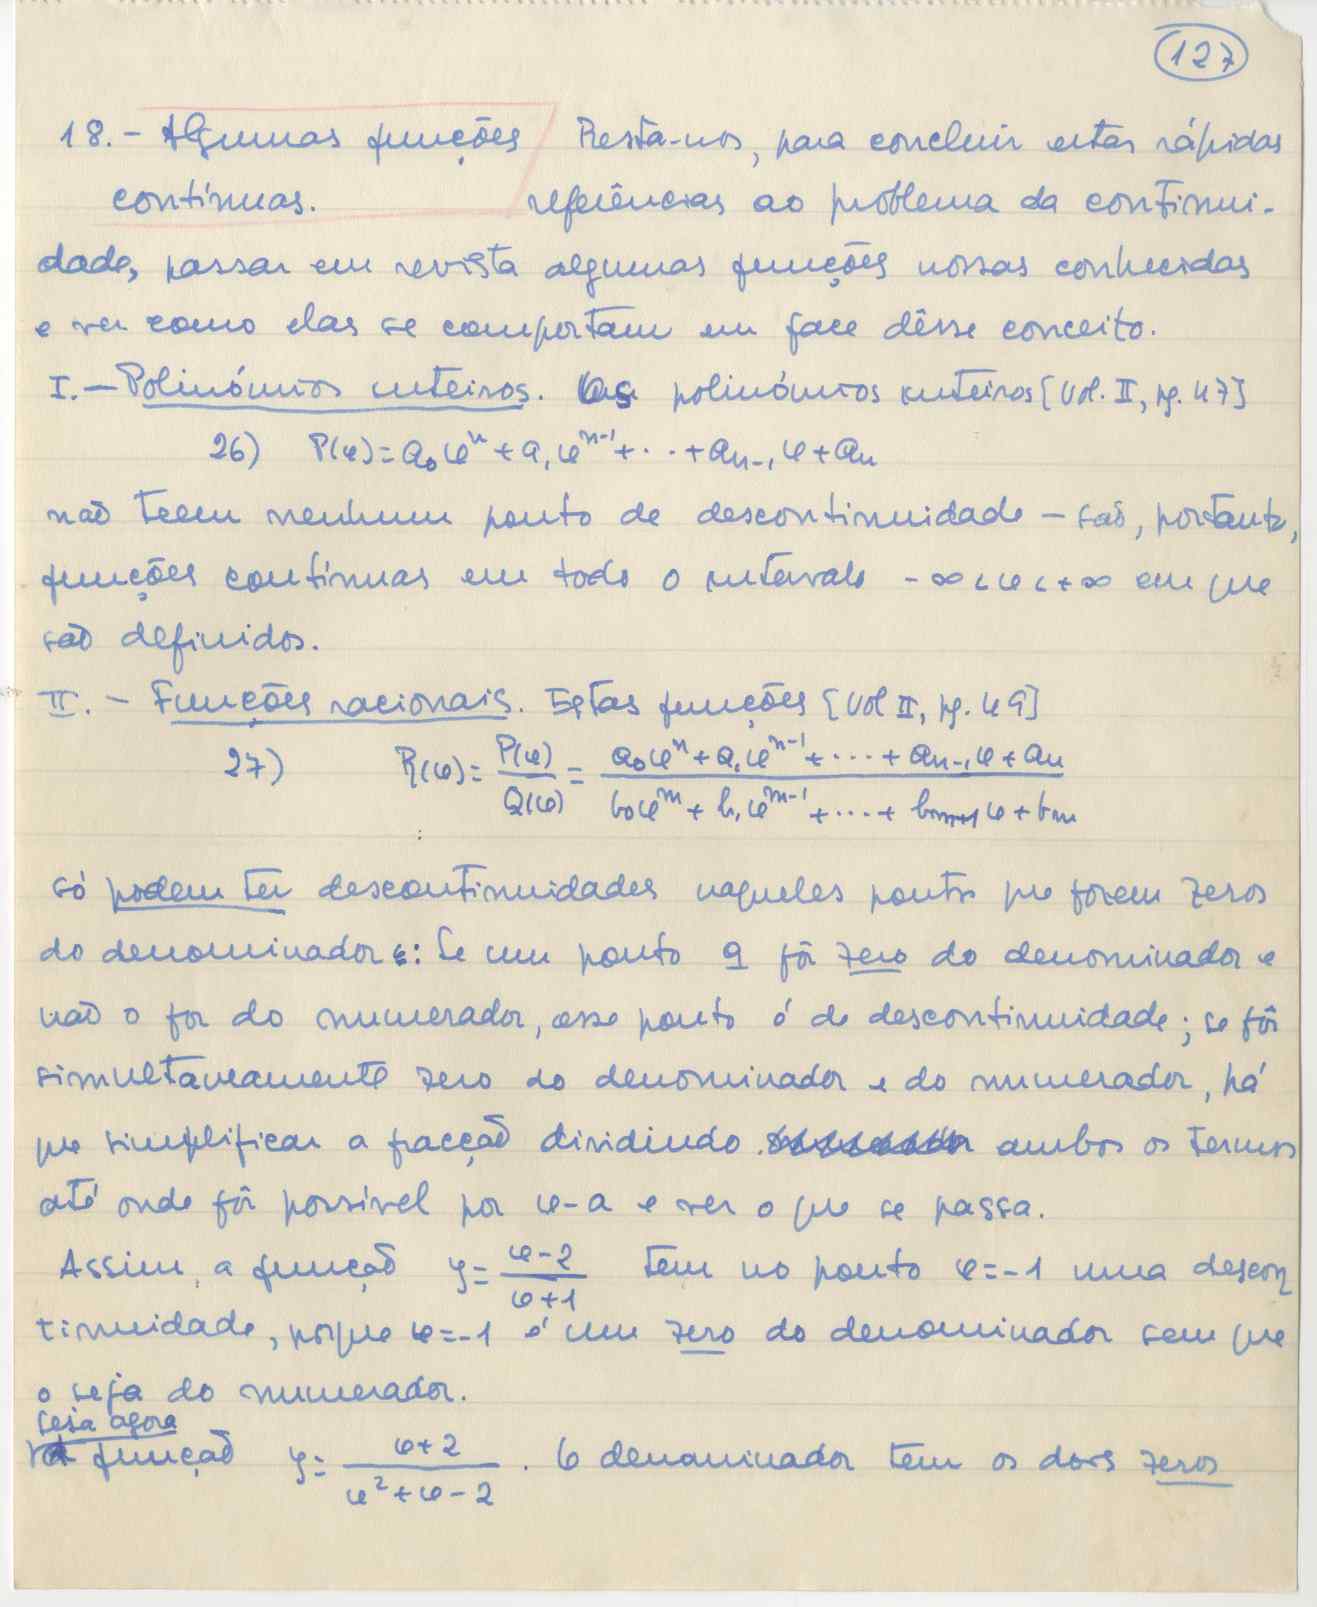 127
18.- Algumas funções Resta-nos, para concluir estas rápidas
contínuas. referências ao problema da continui-
dade, passar em revista algumas funções nossas conhecidas
e ver como elas se comportam em face dêsse conceito.
I.- Polinómios inteiros. Os polinómios inteiros [Vol. II, pg. 47]
26) P(x)=a₀xⁿ+a₁xⁿ⁻¹+...+aₙ₋₁x+aₙ
não teem nenhum ponto de descontinuidade - são, portanto,
funções contínuas em todo o intervalo -∞<x<+∞ em que
são definidos.
II. - Funções racionais. Estas funções [Vol II, pg. 49]
27) R(x)= P(x)/Q(x) = (a₀xⁿ+a₁xⁿ⁻¹+...+aₙ₋₁x+aₙ)/(b₀xᵐ+b₁xᵐ⁻¹+...+bₘ₋₁x+bₘ)
só podem ter descontinuidades naqueles pontos que forem zeros
do denominador: Se um ponto a fôr zero do denominador e
não o for do numerador, esse ponto é de descontinuidade; se fôr
simultaneamente zero do denominador e do numerador, há
que simplificar a fracção dividindo ambos os termos
até onde fôr possível por x-a e ver o que se passa.
Assim, a função y= (x-2)/(x+1) tem no ponto x=-1 uma descon
tinuidade, porque x=-1 é um zero do denominador sem que
o seja do numerador.
Seja agora
a função y= (x+2)/(x²+x-2) . O denominador tem os dois zeros